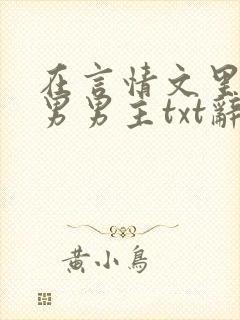 在言情文里
男男主txt辞
黄小鸟